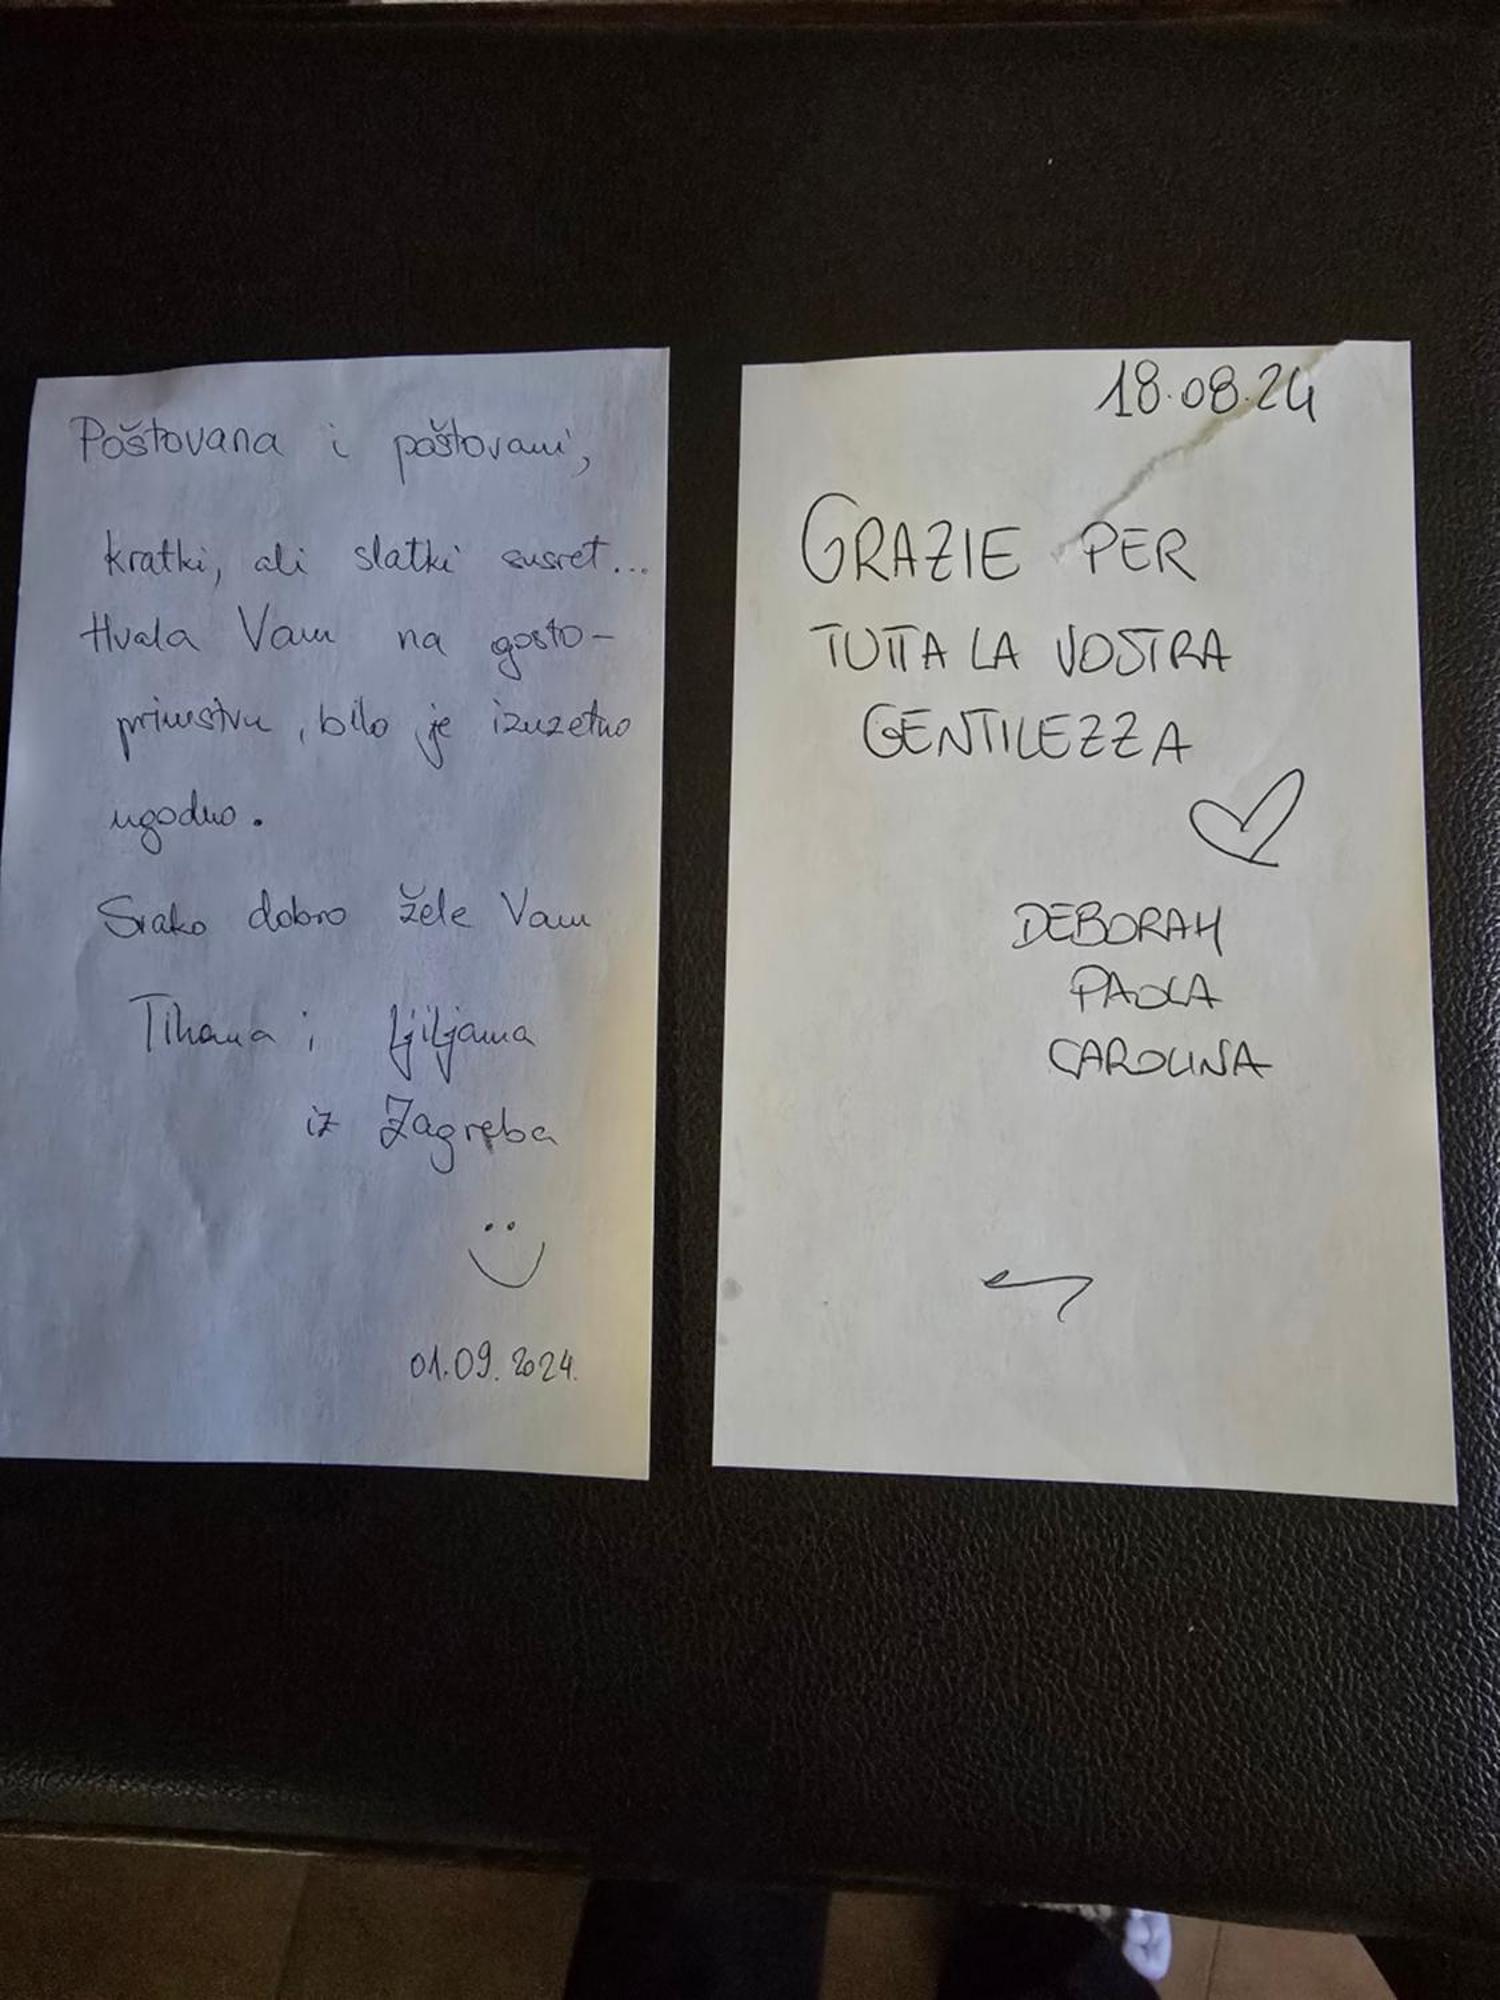 Poštovana i poštovani,
kratki, ali slatki susret...
Hvala Vam na gosto-
primstvu, bilo je izuzetno
ugodno.
Svako dobro žele Vam
Tihana i Ljiljana
iz Zagreba
01.09.2024.
18.08.24
GRAZIE PER
TUTTA LA VOSTRA
GENTILEZZA
DEBORAH
PAOLA
CAROLINA